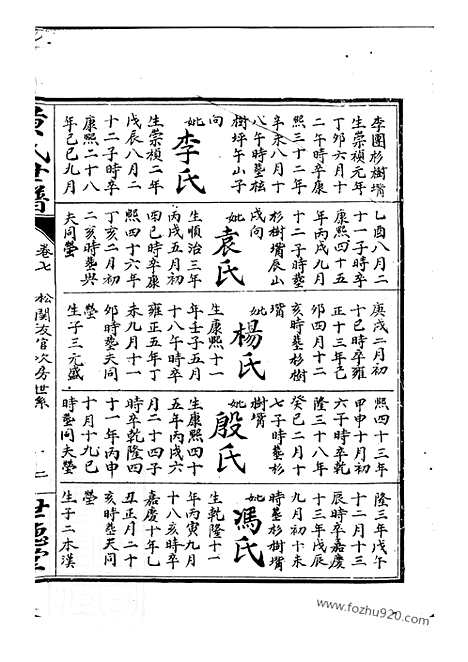 李園杉樹墹
生崇禎元年
丁卯六月十
二午時卒康
熙三十二年
辛未八月十
八午時塟
樹坪午山子
向
妣李氏
生崇禎二年
戊辰八月二
十二子時卒
康熙二十八
年己巳九月
乙酉八月二
十一子時卒
康熙四十五
年丙戌九月
十二子時塟
杉樹墹辰山
戌向
妣袁氏
生順治三年
丙戌五月初
四巳時卒康
熙四十六年
丁亥二月初
二亥時塟與
夫同塋
庚戌二月初
十巳時卒雍
正十三年己
卯四月十二
亥時塟杉樹
墹
妣楊氏
生康熙十一
年壬子五月
十八午時卒
雍正五年丁
未九月初十
卯時塟夫同
塋
生子三元盛
熙四十三年
甲申十月初
六子時卒乾
隆三十八年
癸巳二月十
七子時塟杉
樹墹
妣殷氏
生康熙四十
五年丙戌六
月二十四子
時卒乾隆四
十一年丙申
十月十九巳
時塟同夫塋
隆三年戊午
十二月十三
辰時卒嘉慶
十三年戊辰
九月初十未
時塟杉樹墹
妣馮氏
生乾隆十一
年丙寅九月
十八亥時卒
嘉慶十年乙
丑正月二十
亥時塟夫同
塋
生子二本漢
黃氏世譜
卷七
松関友官次房世系
十二
世德堂
www.fozhu920.com